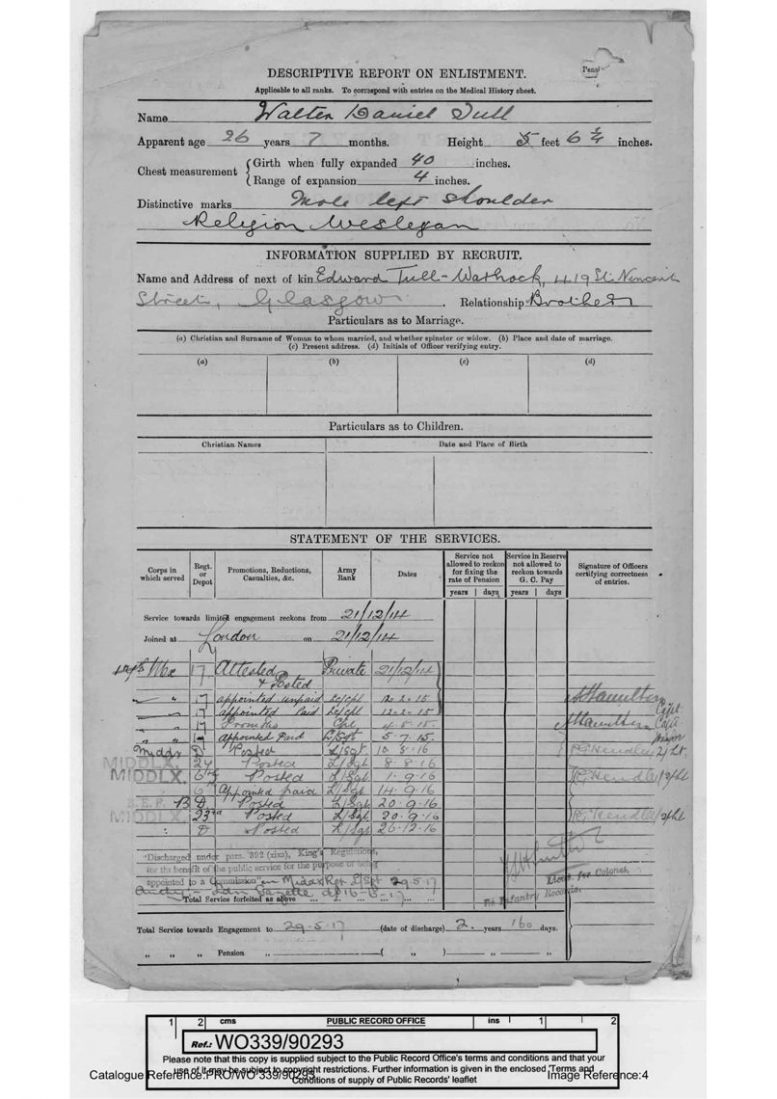 Pensr
DESCRIPTIVE REPORT ON ENLISTMENT.
Applicable to all ranks. To correspond with entries on the Medical History sheet.
Name Walter Daniel Tull
Apparent age 26 years 7 months. Height 5 feet 6 1/4 inches.
Chest measurement { Girth when fully expanded 40 inches.
Range of expansion 4 inches.
Distinctive marks Mole left shoulder
Religion Wesleyan
INFORMATION SUPPLIED BY RECRUIT.
Name and Address of next of kin Edward Tull-Warnock, 419 St. Vincent
Street, Glasgow. Relationship Brother
Particulars as to Marriage.
(a) Christian and Surname of Woman to whom married, and whether spinster or widow. (b) Place and date of marriage.
(c) Present address. (d) Initials of Officer verifying entry.
(a) (b) (c) (d)
Particulars as to Children.
Christian Names Date and Place of Birth
STATEMENT OF THE SERVICES.
Corps in which served Regt. or Depot Promotions, Reductions, Casualties, &c. Army Rank Dates Service not allowed to reckon for fixing the rate of Pension Service in Reserve not allowed to reckon towards G. C. Pay Signature of Officers certifying correctness of entries.
years days years days
Service towards limited engagement reckons from 21/12/14
Joined at London on 21/12/14
17 Attested & Posted Private 21/12/14
" " 17 appointed unpaid L/Cpl 12.2.15 Hamilton Capt
" 17 appointed Paid L/Cpl
17 Promoted Cpl Hamilton Capt
" appointed Paid L/Sgt 5.7.15
Middx D Posted L/Sgt 10.5.16 Hendley 2/Lt
MIDDLX. 27 Posted L/Sgt 8.8.16
MIDDLX. 6th Posted L/Sgt 1.9.16 Hendley 2/Lt
6th Appointed paid L/Sgt 14.9.16
B.E.F. D Posted L/Sgt 20.9.16
MIDDLX. 23rd Posted L/Sgt 20.9.16 Hendley 2/Lt
: D Posted L/Sgt 26.12.16
"Discharged under para. 392 (xixa), King's Regulations,
for the benefit of the public service for the purpose of being
appointed to a Commission" in Middx Reg L/Sgt 29.5.17 Lieut for Colonel,
Lon Gazette
Infantry Records.
Total Service forfeited as above
Total Service towards Engagement to 29.5.17 (date of discharge) 2 years 160 days.
" " " Pension " ( " ) " "
1 2 cms PUBLIC RECORD OFFICE ins 1 2
Ref.: WO339/90293
Please note that this copy is supplied subject to the Public Record Office's terms and conditions and that your
use of it may be subject to copyright restrictions. Further information is given in the enclosed 'Terms and
Conditions of supply of Public Records' leaflet
Catalogue Reference:PRO/WO 339/90293 Image Reference:4